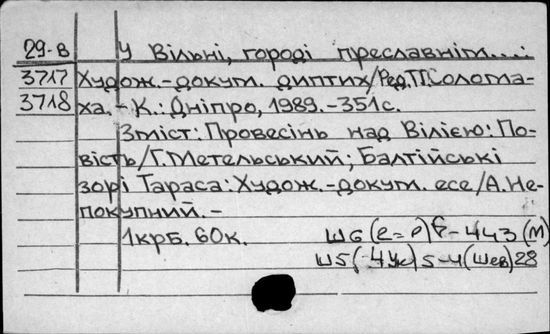 29-в У Вільні, городі преславнім...:
3717 Худож.-докум. диптих/Ред.П.Солома-
3718 ха.-К.: Дніпро, 1989.-351с.
Зміст: Провесінь над Вілією: По-
вість/Г.Метельський; Балтійські
зорі Тараса: Худож.-докум. есе/А.Не-
покупний.-
1крб. 60к. Ш6(2=Р)6-443(М)
Ш5(4Ук)5-4(Шев)28